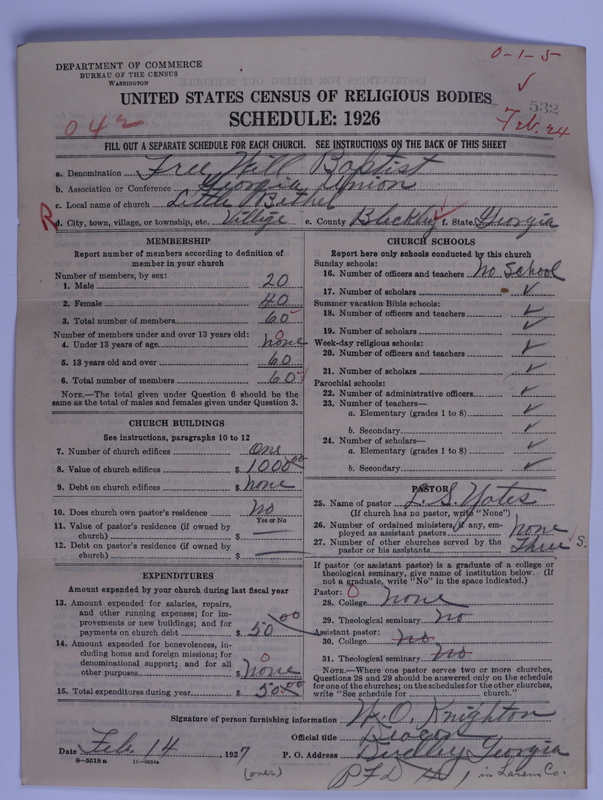 DEPARTMENT OF COMMERCE
BUREAU OF THE CENSUS
WASHINGTON
0-1-5
✓
532
UNITED STATES CENSUS OF RELIGIOUS BODIES
SCHEDULE: 1926
042
Feb. 24
FILL OUT A SEPARATE SCHEDULE FOR EACH CHURCH. SEE INSTRUCTIONS ON THE BACK OF THIS SHEET
a. Denomination Free Will Baptist
b. Association or Conference Georgia Union
c. Local name of church Little Bethel
R d. City, town, village, or township, etc. Village e. County Bleckley f. State Georgia
MEMBERSHIP
Report number of members according to definition of
member in your church
Number of members, by sex:
1. Male 20
2. Female 40
3. Total number of members 60
Number of members under and over 13 years old:
4. Under 13 years of age none 0
5. 13 years old and over 60
6. Total number of members 60
NOTE.—The total given under Question 6 should be
same as the total of males and females given under Question 3.
CHURCH BUILDINGS
See instructions, paragraphs 10 to 12
7. Number of church edifices one
8. Value of church edifices $ 1000 00
9. Debt on church edifices $ none
10. Does church own pastor's residence No
Yes or No
11. Value of pastor's residence (if owned by
church) $ —
12. Debt on pastor's residence (if owned by
church) $ —
EXPENDITURES
Amount expended by your church during last fiscal year
13. Amount expended for salaries, repairs,
and other running expenses; for im-
provements or new buildings; and for
payments on church debt $ 50 00
14. Amount expended for benevolences, in-
cluding home and foreign missions; for
denominational support; and for all
other purposes $ none 0
15. Total expenditures during year $ 50.00
CHURCH SCHOOLS
Report here only schools conducted by this church
Sunday schools:
16. Number of officers and teachers No School
17. Number of scholars ✓
Summer vacation Bible schools:
18. Number of officers and teachers ✓
19. Number of scholars ✓
Week-day religious schools:
20. Number of officers and teachers ✓
21. Number of scholars ✓
Parochial schools:
22. Number of administrative officers ✓
23. Number of teachers—
a. Elementary (grades 1 to 8) ✓
b. Secondary ✓
24. Number of scholars—
a. Elementary (grades 1 to 8) ✓
b. Secondary ✓
PASTOR
25. Name of pastor L. S. Yates
(If church has no pastor, write "None")
26. Number of ordained ministers, if any, em-
ployed as assistant pastors None
27. Number of other churches served by the
pastor or his assistants Three S.
If pastor (or assistant pastor) is a graduate of a college or
theological seminary, give name of institution below. (If
not a graduate, write "No" in the space indicated.)
Pastor: 0
28. College none
29. Theological seminary No
Assistant pastor:
30. College No
31. Theological seminary No
NOTE.—Where one pastor serves two or more churches,
Questions 28 and 29 should be answered only on the schedule
for one of the churches; on the schedules for the other churches,
write "See schedule for church."
Signature of person furnishing information W. O. Knighton
Official title Deacon
Date Feb. 14, 1927 P. O. Address Dudley Georgia
8-5518a 11-9024a
(over) RFD #1, in Laurens Co.